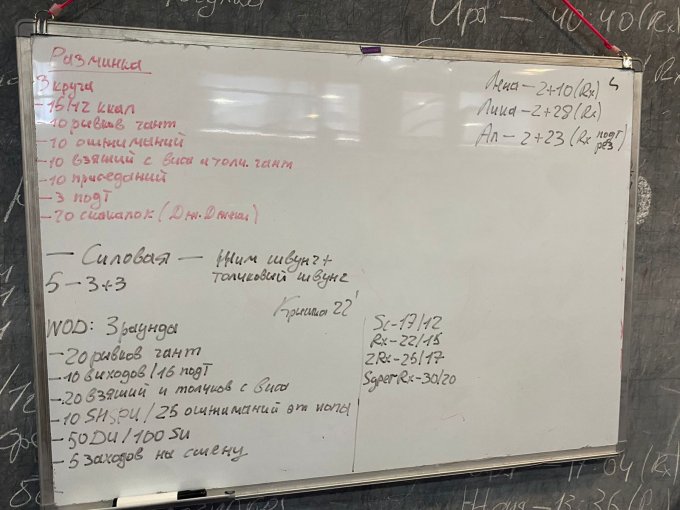 Ира — 40:40 (Rx)
Разминка
3 круга
- 15/12 ккал
- 10 рывков гант
- 10 отжиманий
- 10 взятий с виса и толч. гант
- 10 приседаний
- 3 подт
- 20 скакалок (Дж. Джеки)
Лена - 2+10 (Rx)
Лика - 2+28 (Rx)
Ал - 2+23 (Rx подт рез
— Силовая — Жим швунг+
толчковый швунг
5 - 3+3
Крышка 22'
WOD: 3 раунда
- 20 рывков гант
- 10 выходов/16 подт
- 20 взятий и толчков с виса
- 10 SHSPU/25 отжиманий от попы
- 50 DU/100 SU
- 5 заходов на стену
Sc-17/12
Rx-22/15
2Rx-25/17
Super Rx-30/20
04 (Rx)
Женя - 13:36 (R